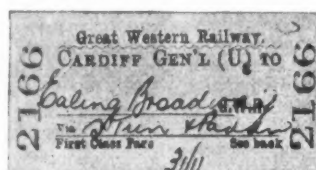 2166
Great Western Railway.
CARDIFF GEN'L (U) TO
Ealing Broadway
G.W.R.
Via S Tun & Paddn
First Class Fare See back
31/11
2166